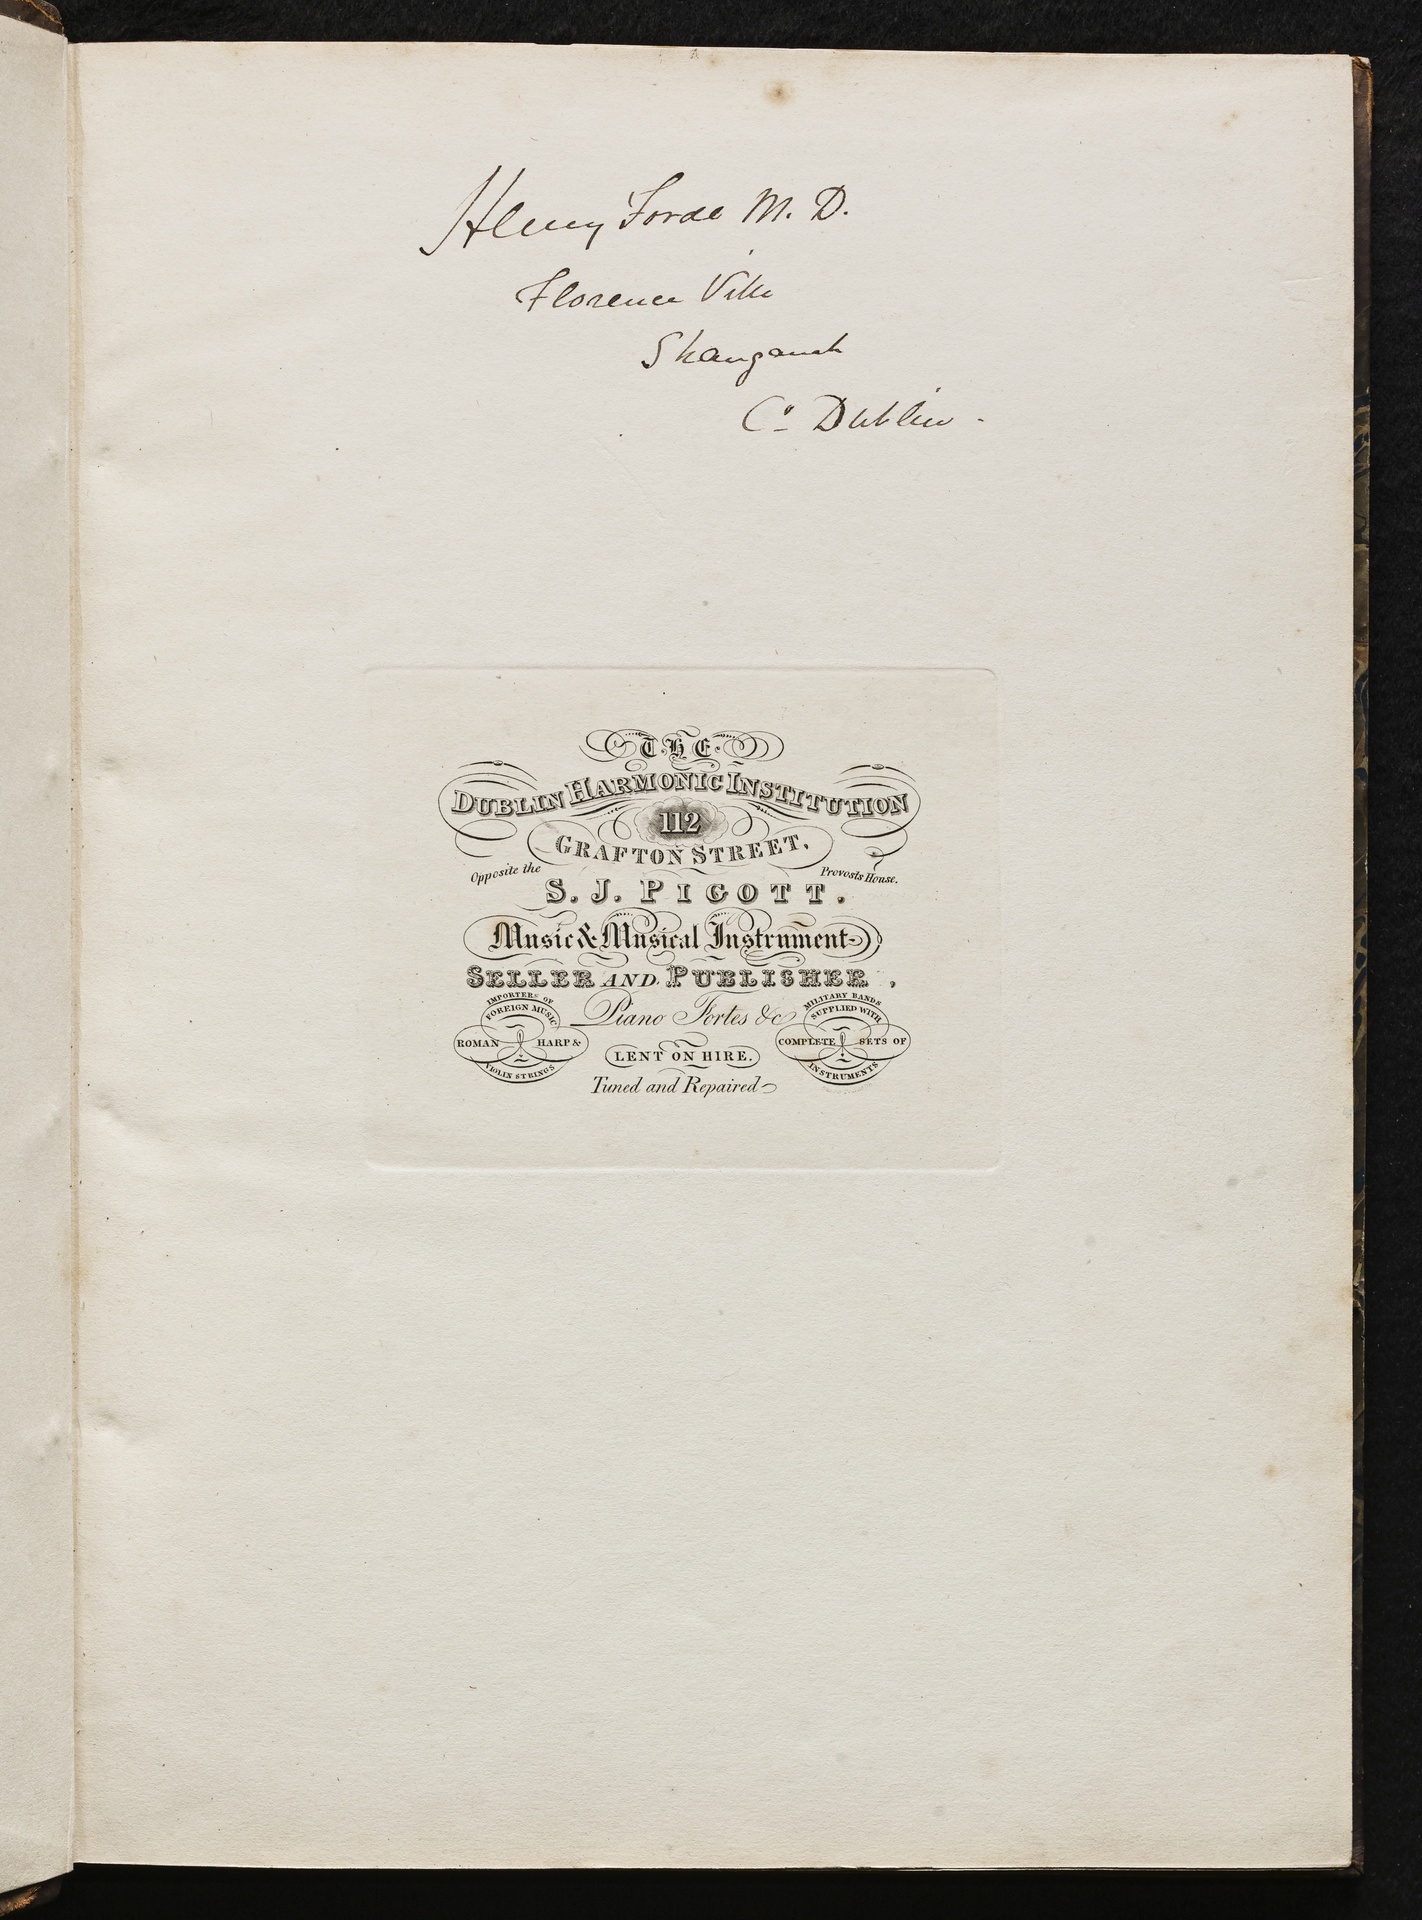 Henry Forde M. D.
Florence Ville
Shanganah
Co Dublin -
THE
DUBLIN HARMONIC INSTITUTION
112
GRAFTON STREET,
Opposite the Provosts House.
S. J. PIGOTT.
Music & Musical Instrument
SELLER AND PUBLISHER,
IMPORTERS OF
FOREIGN MUSIC
ROMAN HARP &
VIOLIN STRINGS
Piano Fortes &c
LENT ON HIRE.
Tuned and Repaired
MILITARY BANDS
SUPPLIED WITH
COMPLETE SETS OF
INSTRUMENTS